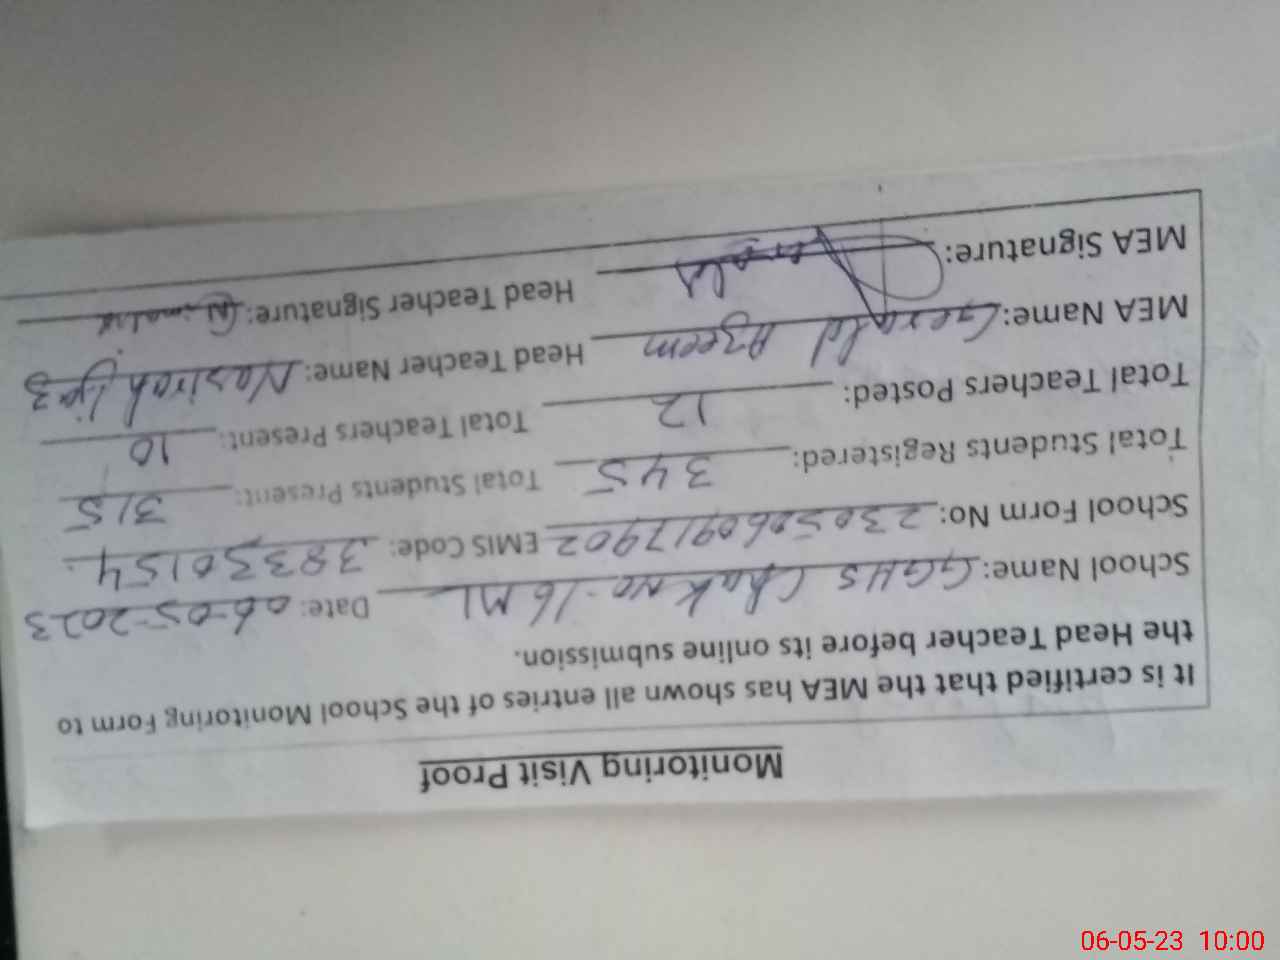 Monitoring Visit Proof
It is certified that the MEA has shown all entries of the School Monitoring Form to
the Head Teacher before its online submission.
School Name: GGHS Chak No-16 ML Date: 06-05-2023
School Form No: 2305060917902 EMIS Code: 38330154
Total Students Registered: 345 Total Students Present: 315
Total Teachers Posted: 12 Total Teachers Present: 10
MEA Name: Gerald Azeem Head Teacher Name: Nasirah Ijaz
MEA Signature: Gerald Head Teacher Signature:
06-05-23 10:00